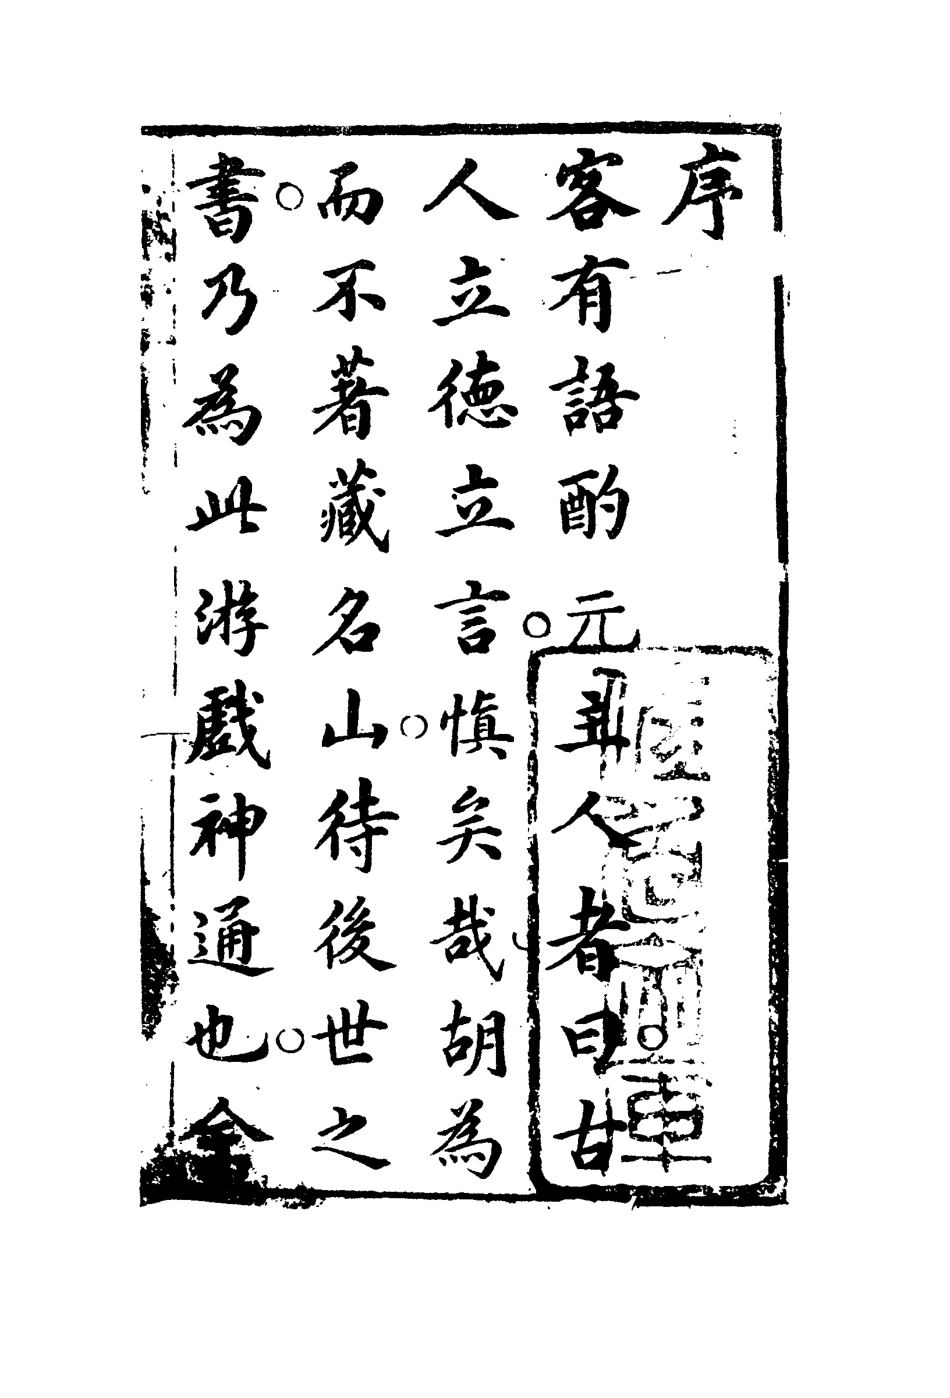 序
客有語酌元主人者曰古
人立德立言慎矣哉胡為
而不著藏名山待後世之
書乃為此游戲神通也今